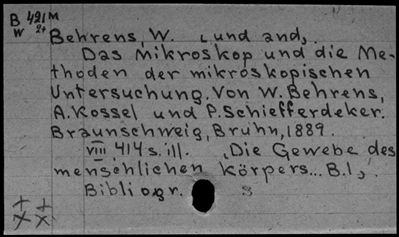 B 421 M
W 2+
Behrens, W. (und and).
Das Mikroskop und die Me-
thoden der mikroskopischen
Untersuchung. Von W. Behrens,
A. Kossel und P. Schiefferdeker.
Braunschweig, Bruhn, 1889.
VIII 414 s. ill. (Die Gewebe des
menschlichen körpers... B.1).
Bibliogr.